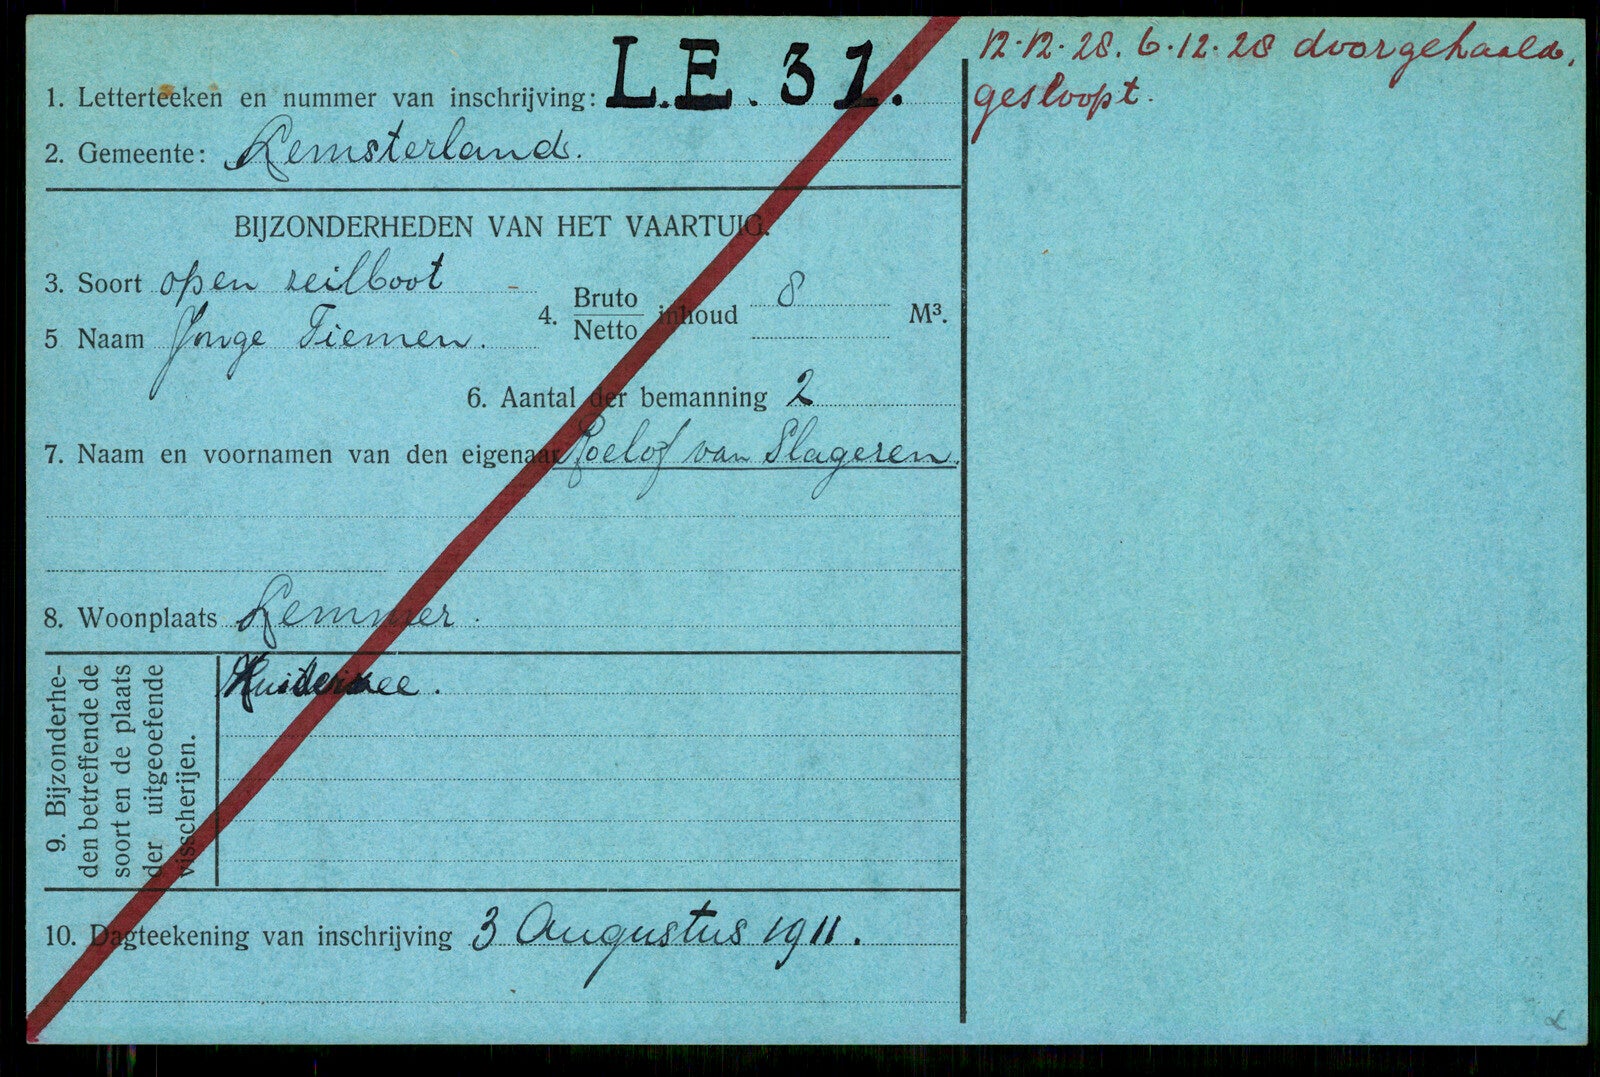 1. Letterteeken en nummer van inschrijving: L.E. 31.
2. Gemeente: Lemsterland.
BIJZONDERHEDEN VAN HET VAARTUIG.
3. Soort open zeilboot
4. Bruto Netto inhoud 8 M³.
5 Naam Jonge Tiemen.
6. Aantal der bemanning 2
7. Naam en voornamen van den eigenaar Roelof van Slageren.
8. Woonplaats Lemmer.
9. Bijzonderhe-
den betreffende de
soort en de plaats
der uitgeoefende
visscherijen.
10. Dagteekening van inschrijving 3 Augustus 1911.
12.12.28. 6.12.28 doorgehaald,
gesloopt.